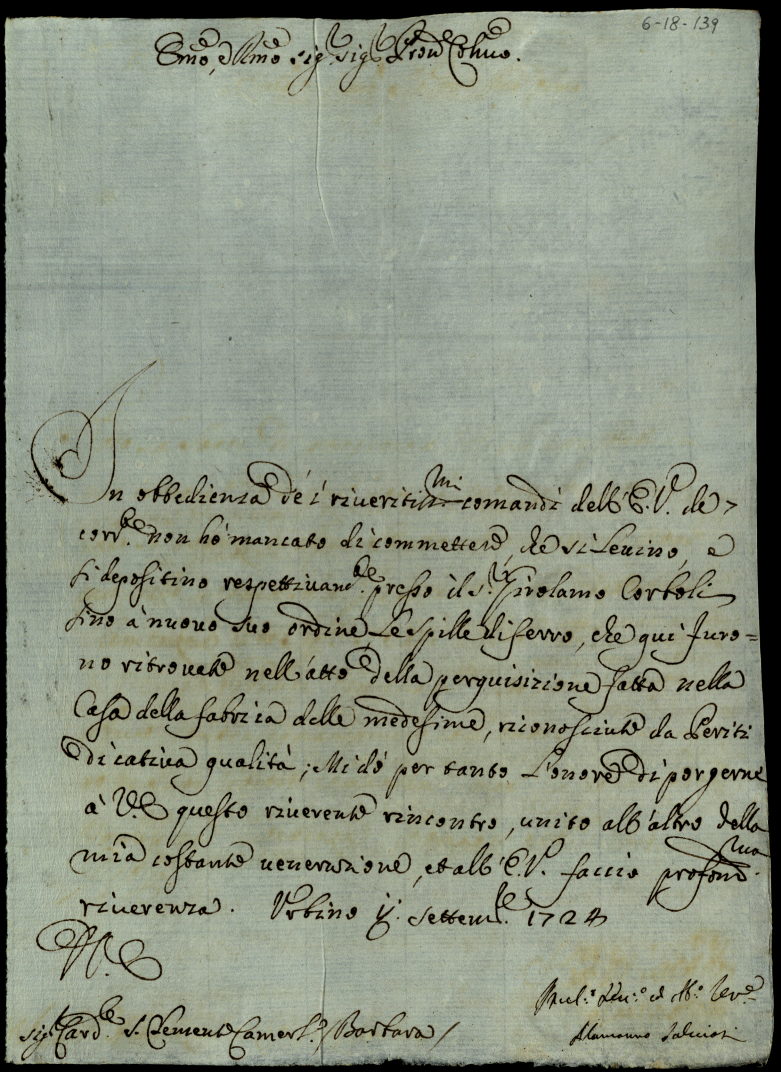 6-18-139
Emo, e Rmo sig. sig. Pron Colmo.
In obbedienza de' i riveritimi comandi dell'E.V. de
corle. non hò mancato di commettere, che si Levino, e
si depositino respettivamte. presso il sr. Girolamo Corboli
sino à nuovo suo ordine Le spille di ferro, che qui furo=
no ritrovate nell'atto della perquisizione fatta nella
Casa della fabrica delle medesime, riconosciute da Periti
di cativa qualità; Mi dò per tanto L'onore di porgerne
à V.E questo riverente rincontro, unito all'altro della
mia costante venerazione, et all'E.V. faccio profondma.
riverenza. Urbino Settemle. 1724
V.E
sig. Cardle. S. Clemente Camerlo. / Barbara /
Alamanno Salviati